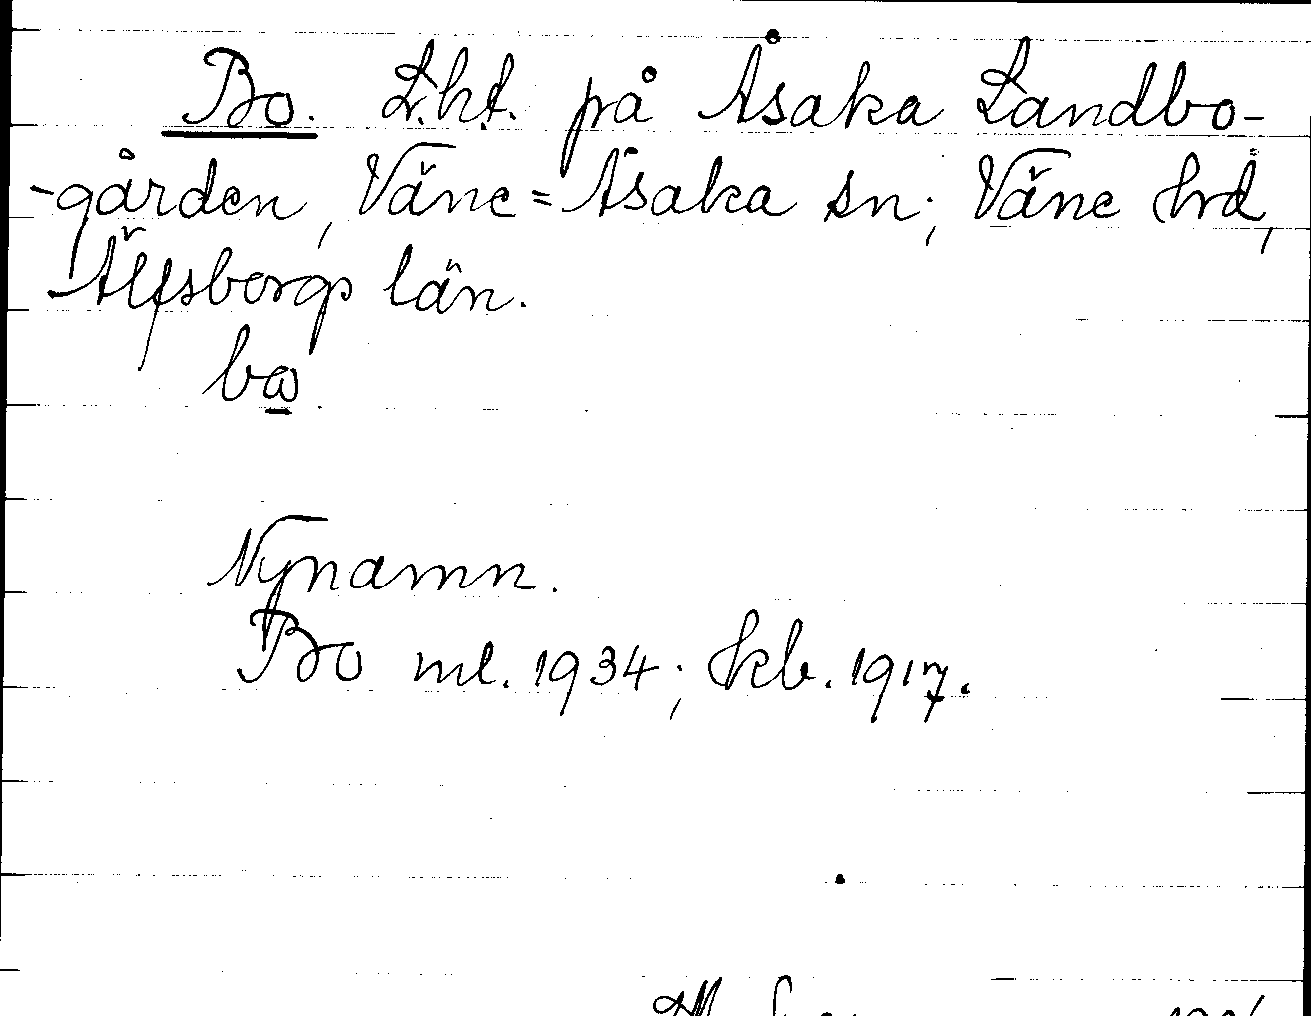 Bo. L.ht. på Åsaka Landbo-
-gården, Väne=Åsaka sn; Väne hrd,
Älfsborgs län.
bω
Nynamn.
Bo ml. 1934; kb. 1917.